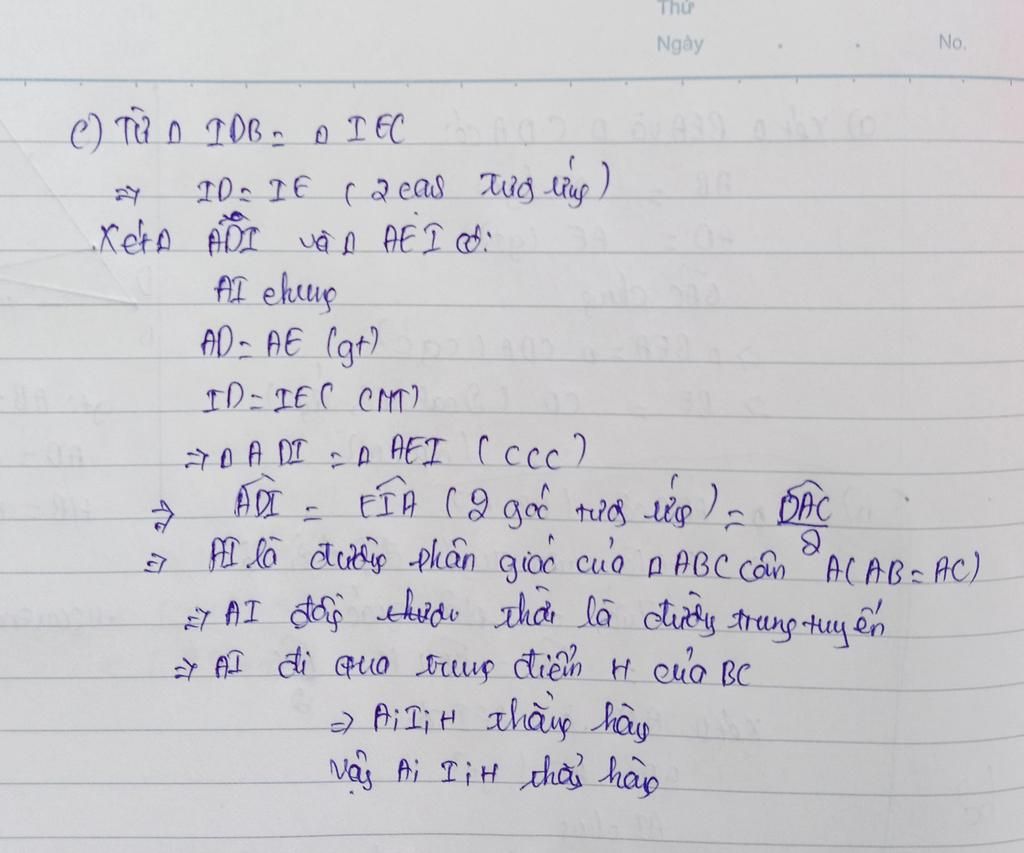 Thứ
Ngày . . No.
c) Từ Δ IDB = Δ IEC
=> ID = IE (2 cạh tưg ứng)
Xét Δ ADI và Δ AEI có:
AI chung
AD = AE (gt)
ID = IE (CMT)
=> Δ ADI = Δ AEI (ccc)
=> \widehat{ADI} = \widehat{EIA} (2 góc tưg ứg) = \widehat{BAC}/2
=> AI là đường phân giác của Δ ABC cân A (AB = AC)
=> AI đồng thời là đường trung tuyến
=> AI đi qua trung điểm H của BC
=> A; I; H thẳng hàng
Vậy A; I; H thẳng hàng